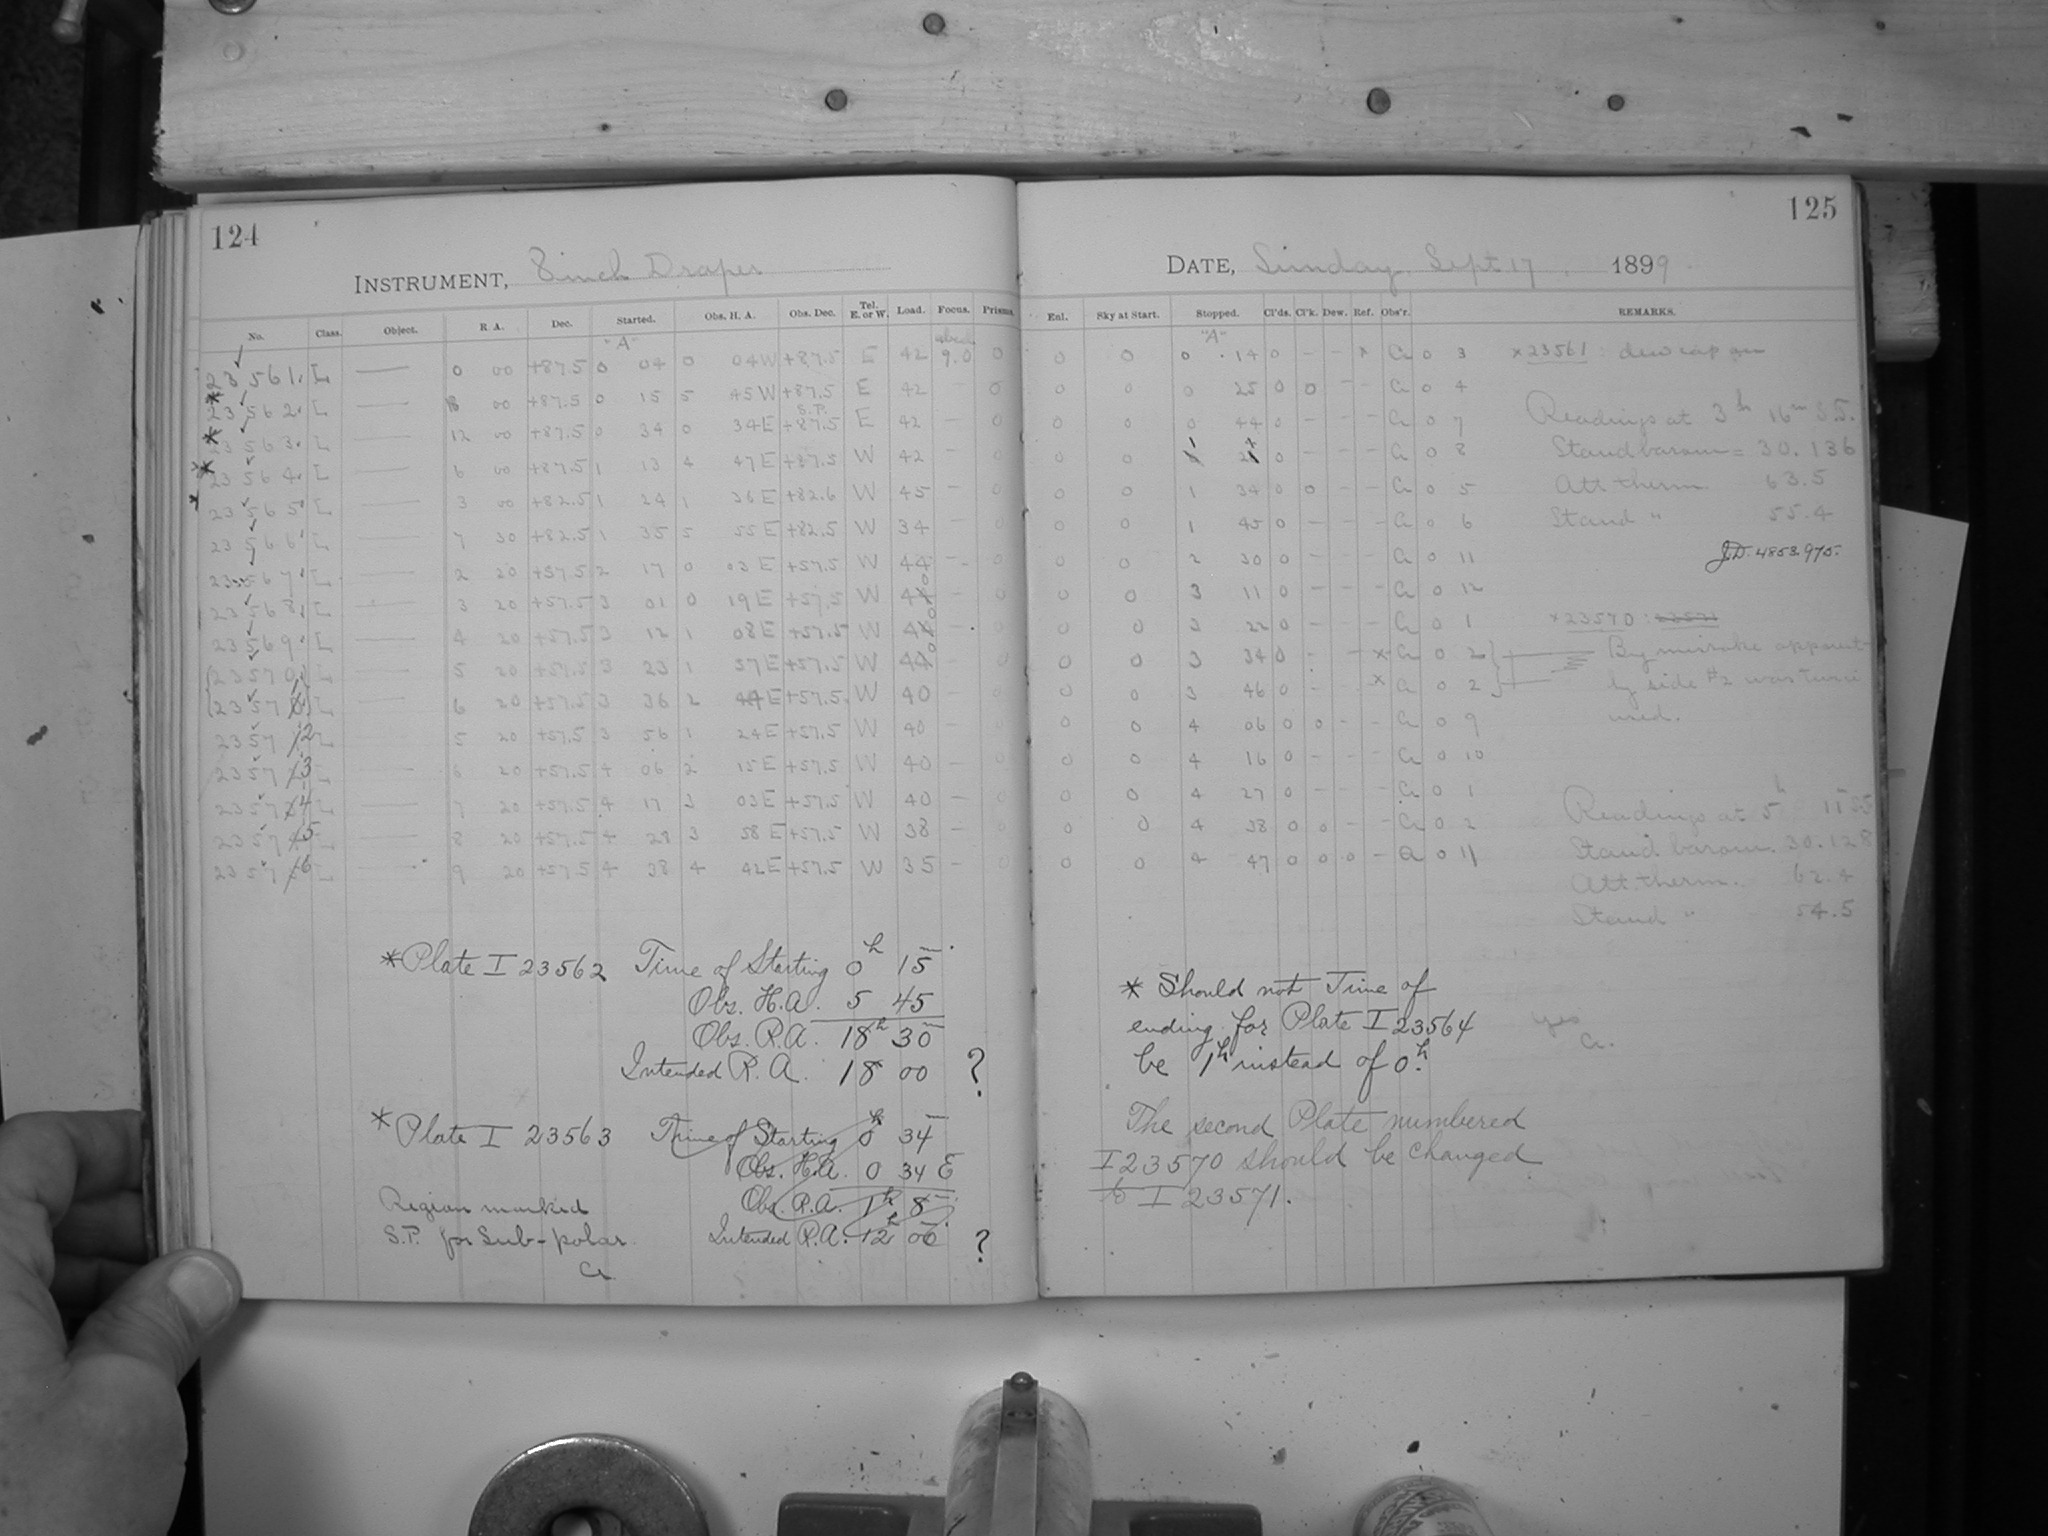 124
INSTRUMENT, 8 inch Draper
No. Class. Object. R. A. Dec. Started. Obs. H. A. Obs. Dec. Tel. E. or W. Load. Focus. Prisms.
"A"
23561. L — 0 00 +87.5 0 04 0 04W +87.5 E 42 9.0 0
* 23562. L — 00 +87.5 0 15 5 45W +87.5 E 42 – 0
S.P.
* 23563. L — 12 00 +87.5 0 34 0 34E +87.5 E 42 – 0
* 23564. L — 6 00 +87.5 1 13 4 47E +87.5 W 42 – 0
23565. L — 3 00 +82.5 1 24 1 36E +82.6 W 45 – 0
23566. L — 7 30 +82.5 1 35 5 55E +82.5 W 34 – 0
23567. L — 2 20 +57.5 2 17 0 03E +57.5 W 44 – 0
23568. L — 3 20 +57.5 3 01 0 19E +57.5 W 40 – 0
23569. L — 4 20 +57.5 3 12 1 08E +57.5 W 40 – 0
23570. L — 5 20 +57.5 3 23 1 57E +57.5 W 40 – 0
23571 L — 6 20 +57.5 3 36 2 44E +57.5 W 40 – 0
23572 L — 5 20 +57.5 3 56 1 24E +57.5 W 40 – 0
23573 L — 6 20 +57.5 4 06 2 15E +57.5 W 40 – 0
23574 L — 7 20 +57.5 4 17 3 03E +57.5 W 40 – 0
23575 L — 8 20 +57.5 4 28 3 58E +57.5 W 38 – 0
23576 L — 9 20 +57.5 4 38 4 42E +57.5 W 35 – 0
*Plate I 23562 Time of Starting 0h 15m.
Obs. H.A. 5 45
Obs. R.A. 18h 30m
Intended R.A. 18 00 ?
* Plate I 23563 Time of Starting 0h 34m
Obs. H.A. 0 34 E
Obs. R.A. 1h 8m
Intended R.A. 12h 00 ?
Region marked
S.P. for Sub-polar
125
DATE, Sunday Sept 17, 1899
Enl. Sky at Start. Stopped. Cl'ds. Cl'k. Dew. Ref. Obs'r. REMARKS.
"A"
0 0 0 14 0 – – x 0 3 x23561 : dewcap on
0 0 0 25 0 0 – – 0 4
0 0 0 44 0 – – – 0 7
0 0 1 24 0 – – – 0 8
0 0 1 34 0 0 – – 0 5
0 0 1 45 0 – – – 0 6
0 0 2 30 0 – – – 0 11
0 0 3 11 0 – – – 0 12
0 0 3 22 0 – – – 0 1
0 0 3 34 0 – – x 0 2
0 0 3 46 0 – – x 0 2
0 0 4 06 0 0 – – 0 9
0 0 4 16 0 – – – 0 10
0 0 4 27 0 – – – 0 1
0 0 4 38 0 0 – – 0 2
0 0 4 47 0 0 0 – 0 11
Readings at 3h 16m 55.
Stand barom = 30.136
Att therm. 63.5
Stand " 55.4
J.D. 4853.975.
x23570 : 23571
By mistake apparent-
ly side #2 was twice
used.
Readings at 5h
Stand barom. 30.128
Att. therm. 62.4
Stand " 54.5
* Should not Time of
ending for Plate I 23564
be 1h instead of 0h.
yes
The second Plate numbered
I 23570 should be changed
to I 23571.